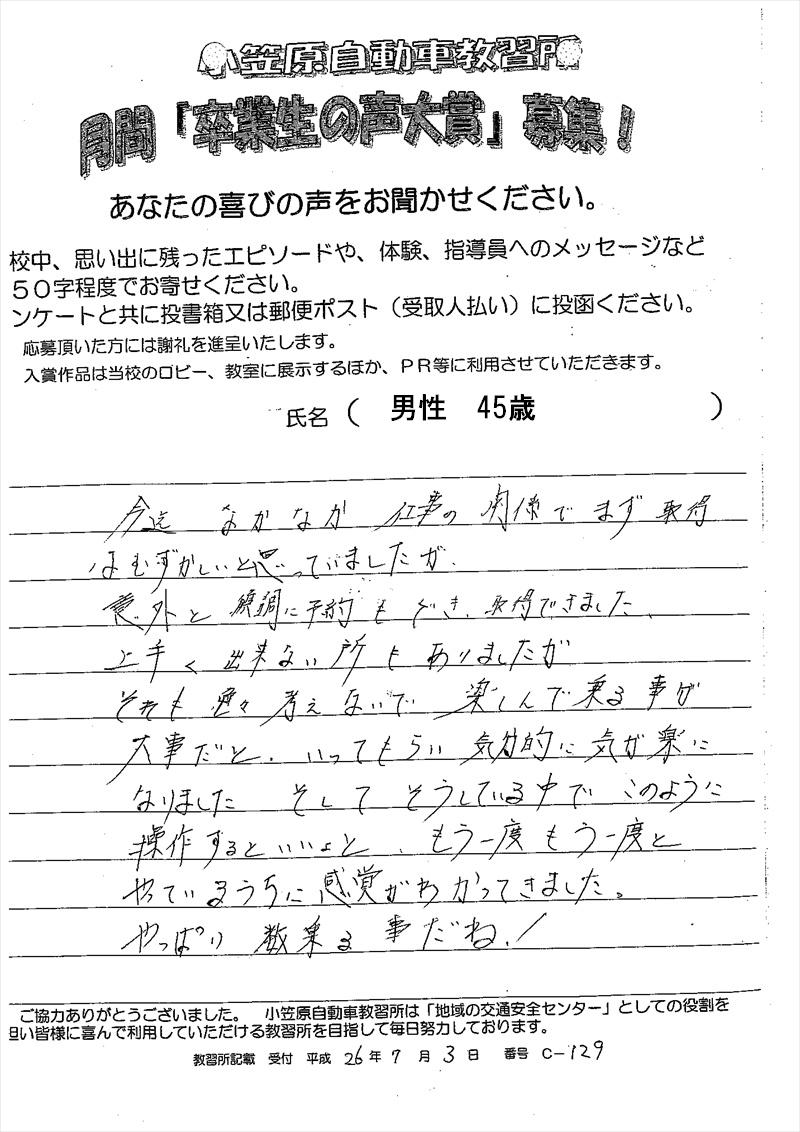 小笠原自動車教習所
月間「卒業生の声大賞」募集！
あなたの喜びの声をお聞かせください。
校中、思い出に残ったエピソードや、体験、指導員へのメッセージなど
５０字程度でお寄せください。
ンケートと共に投書箱又は郵便ポスト（受取人払い）に投函ください。
応募頂いた方には謝礼を進呈いたします。
入賞作品は当校のロビー、教室に展示するほか、ＰＲ等に利用させていただきます。
氏名（ 男性 45歳 ）
今迄 なかなか 仕事の 関係で まず 取得
はむずかしいと思っていましたが
意外と 順調に予約もでき、取得できました、
上手く 出来ない所もありましたが
それも 色々 考えないで 楽しんで乗る事が
大事だと、いってもらい 気分的に気が楽に
なりました そして そうしている中で このように
操作するといいよと、もう一度もう一度と
やっているうちに感覚がわかってきました。
やっぱり 数乗る 事だね！
ご協力ありがとうございました。 小笠原自動車教習所は「地域の交通安全センター」としての役割を
担い皆様に喜んで利用していただける教習所を目指して毎日努力しております。
教習所記載 受付 平成 26年 7月 3日 番号 C-129